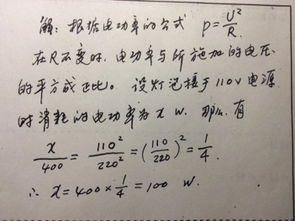 解：根据电功率的公式 P=U²/R.
在R不变时，电功率与所施加的电压
的平方成正比。设灯泡接于110V电源
时消耗的电功率为x W. 那么，有
x/400 = 110²/220² = (110/220)² = 1/4.
∴ x = 400 × 1/4 = 100 W.